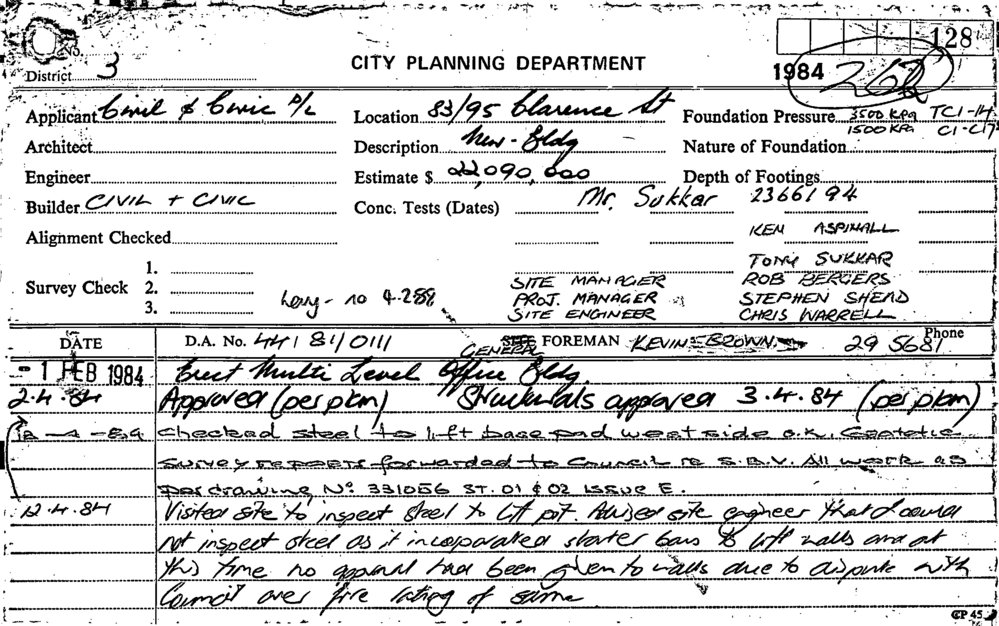 No.
128
District 3
CITY PLANNING DEPARTMENT
1984 262
Applicant Civil & Civic P/L Location 83/95 Clarence St Foundation Pressure 3500 KPa TC1-14
1500 KPa C1-C17
Architect Description New - Bldg Nature of Foundation
Engineer Estimate $ 22,090,000 Depth of Footings
Builder CIVIL + CIVIC Conc. Tests (Dates) Mr. Sukkar 2366194
Alignment Checked KEN ASPINALL
TONY SUKKAR
1.
Survey Check 2. SITE MANAGER ROB BERGERS
Levy - no 4.289 PROJ. MANAGER STEPHEN SHEAD
3. SITE ENGINEER CHRIS WARRELL
DATE D.A. No. 44/81/0111 GENERAL FOREMAN KEVIN BROWN Phone 29 5681
- 1 FEB 1984 Erect Multi Level Office Bldg.
2.4.84 Approved (per pkm) Structurals approved 3.4.84 (per pkm)
12-4-84 Checked steel to lift base pad west side o.k. Geodetic
survey reports forwarded to Council re S.B.V. All work as
per drawing No 331056 ST. 01 & 02 ISSUE E.
12.4.84 Visited site to inspect steel to lift pit. Advised site engineer that I could
not inspect steel as it incorporated starter bars to lift walls and at
this time no approval had been given to walls due to dispute with
Council over fire rating of same
CP 45